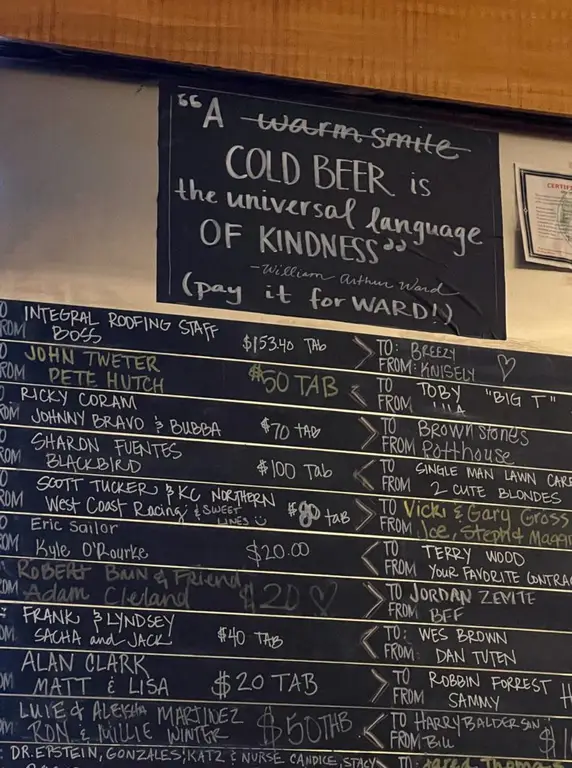 "A warm smile
COLD BEER is
the universal language
OF KINDNESS"
-William Arthur Ward
(pay it for WARD!)
CERTIF
O INTEGRAL ROOFING STAFF
ROM BOSS
$153.40 TAB
TO: BREEZY
FROM: KNISELY
O JOHN TWETER
ROM PETE HUTCH
$50 TAB
TO TOBY "BIG T"
FROM
O RICKY CORAM
ROM JOHNNY BRAVO & BUBBA
$70 TAB
TO BROWNSTONES
FROM POTTHOUSE
O SHARON FUENTES
ROM BLACKBIRD
$100 Tab
TO SINGLE MAN LAWN CARE
FROM 2 CUTE BLONDES
O SCOTT TUCKER & KC NORTHERN
ROM West Coast Racing & SWEET LINES
tab
TO Vicki & Gary Gross
FROM Joe, Steph & Maggi
O Eric Sailor
ROM Kyle O'Rourke
$20.00
TO TERRY WOOD
FROM YOUR FAVORITE CONTRA
O ROBERT BAIN & Friend
ROM Adam Cleland
$20
TO JORDAN ZEVITE
FROM BFF
: FRANK & LYNDSEY
OM: SACHA and JACK
$40 TAB
TO: WES BROWN
FROM: DAN TUTEN
ALAN CLARK
OM MATT & LISA
$20 TAB
TO ROBBIN FORREST
FROM SAMMY
LUIE & ALEISHA MARTINEZ
OM RON & MILLIE WINTER
$50 TAB
TO HARRY BALDERSON
FROM Bill
$1
: DR. EPSTEIN, GONZALES, KATZ & NURSE CANDICE, STACY
TO: Jared Thomas